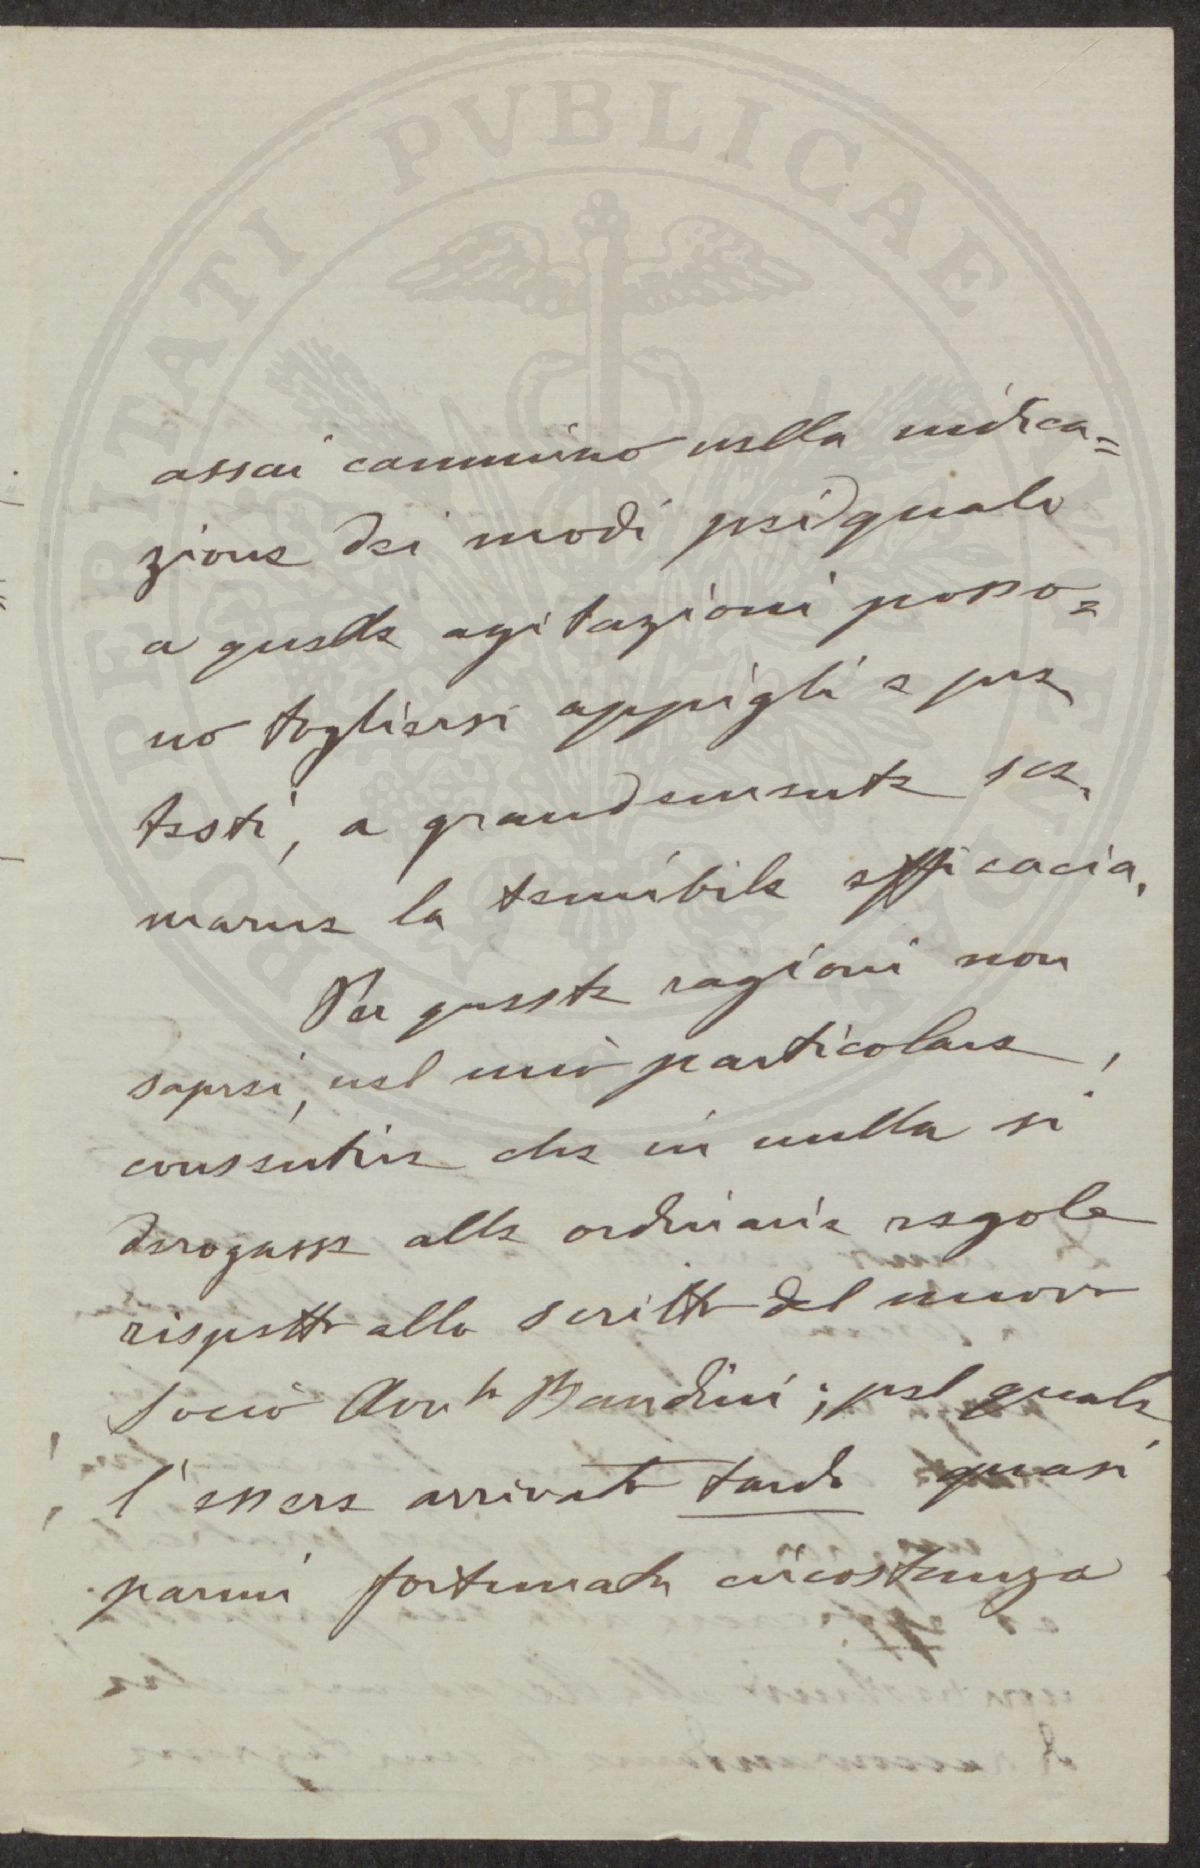 PROSPERITATI PVBLICAE AVGENDAE
assai cammino nella indica=
zione dei modi pei quali
a queste agitazioni posso=
no togliersi appigli e pre
testi, e grandemente sce,
marne la temibile efficacia,
Per queste ragioni non
saprei, nel mio particolare,
consentire che in nulla si
derogasse alle ordinarie regole
rispetto allo scritto del nuovo
Socio Avv.to Bandini; pel quale
l'essere arrivato tardi quasi
parmi fortunata circostanza